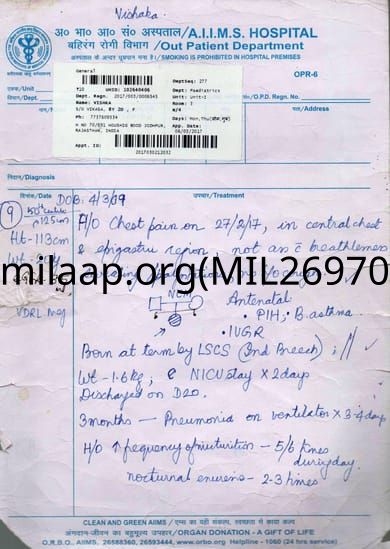 Vishaka.
अ० भा० आ० सं० अस्पताल/A.I.I.M.S. HOSPITAL
बहिरंग रोगी विभाग/Out Patient Department
अस्पताल के अन्दर धूम्रपान मना है।/SMOKING IS PROHIBITED IN HOSPITAL PREMISES
OPR-6
General
UHID: 102640606
DeptSeq: 277
एकक/Unit
Dept. Regn. 2017/003/0006545
Dept: Paediatrics
विभाग/Dept.
Name: VISHKA
Unit: Unit-I
O.P.D. Regn. No.
S/O VIKASA, 8Y 2D , F
Room: 7
नाम/Name
Ph: 7737509534
Days: Mon,Thu
पता/Address
H NO 70/631 HOUSHIG BOOD JODHPUR,
RAJASTHAN, INDIA
App. Date:
06/03/2017
Appt. ID:
2017030212032
निदान/Diagnosis
दिनांक/Date
DOB: 4/3/09
उपचार/Treatment
9
50th centile
= 125cm
H/O Chest pain on 27/2/17, in central chest
Ht- 113cm
& epigastric region, not as c̄ breathlessness
milaap.org(MIL26970
NCM
VDRL Neg
Antenatal
• PIH; B. asthma
• IUGR
Born at term by LSCS (2nd Breech);
Wt - 1.6kg; c̄ NICU stay x 2 days
Discharged on D20.
3 months - Pneumonia on ventilator x 3-4 days
H/O ↑ frequency of micturition - 5/6 times
during day.
nocturnal enuresis - 2-3 times
CLEAN AND GREEN AIIMS / एम्स का यही संकल्प, स्वच्छता से काया कल्प
अंगदान-जीवन का बहुमूल्य उपहार/ORGAN DONATION - A GIFT OF LIFE
O.R.B.O., AIIMS, 26588360, 26593444, www.orbo.org Helpline - 1060 (24 hrs service)